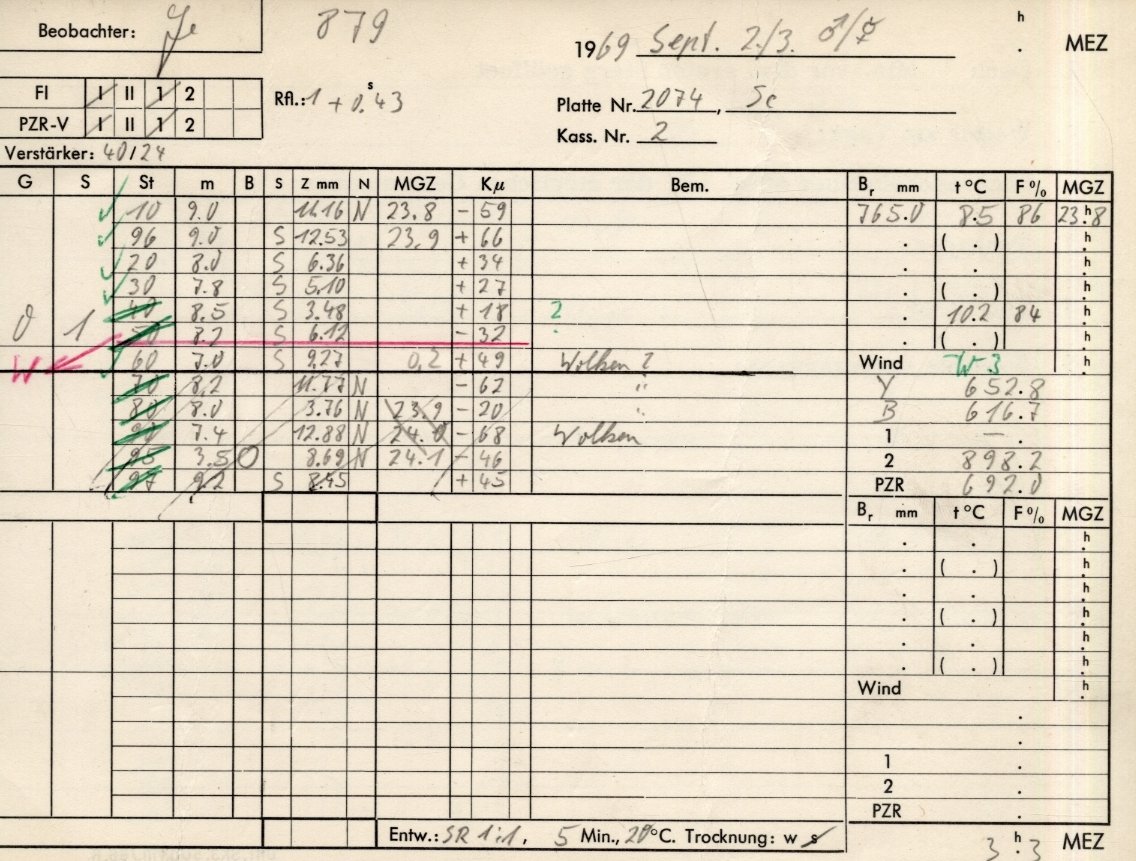 Beobachter: Je
879
1969 Sept. 2./3. ♂/☿ h . MEZ
FI I II 1 2
PZR-V I II 1 2
Rfl.: 1 + 0.s43
Platte Nr. 2074, Sc
Kass. Nr. 2
Verstärker: 40/24
G S St m B S Z mm N MGZ Kμ Bem. Br mm t °C F % MGZ
10 9.0 11.16 N 23.8 - 59 765.0 8.5 86 23.h8
96 9.0 S 12.53 23.9 + 66 . ( . ) h.
20 8.0 S 6.36 + 34 . . h.
30 7.8 S 5.10 + 27 . ( . ) h.
40 8.5 S 3.48 + 18 ? . 10.2 84 h.
0 1 50 8.2 S 6.12 - 32 . ( . ) h.
W 60 7.0 S 9.27 0.2 + 49 Wolken ? Wind W 3 h.
70 8.2 11.77 N - 62 " Y 652.8
80 8.0 3.76 N 23.9 - 20 " B 616.7
90 7.4 12.88 N 24.0 - 68 Wolken 1 — .
95 3.5 0 8.69 N 24.1 - 46 2 898.2
97 9.2 S 8.45 + 45 PZR 692.0
Br mm t °C F % MGZ
. . h.
. ( . ) h.
. . h.
. ( . ) h.
. . h.
. ( . ) h.
Wind h.
.
.
1 .
2 .
PZR .
Entw.: SR 1:1, 5 Min., 20°C. Trocknung: w s 3 h. 3 MEZ